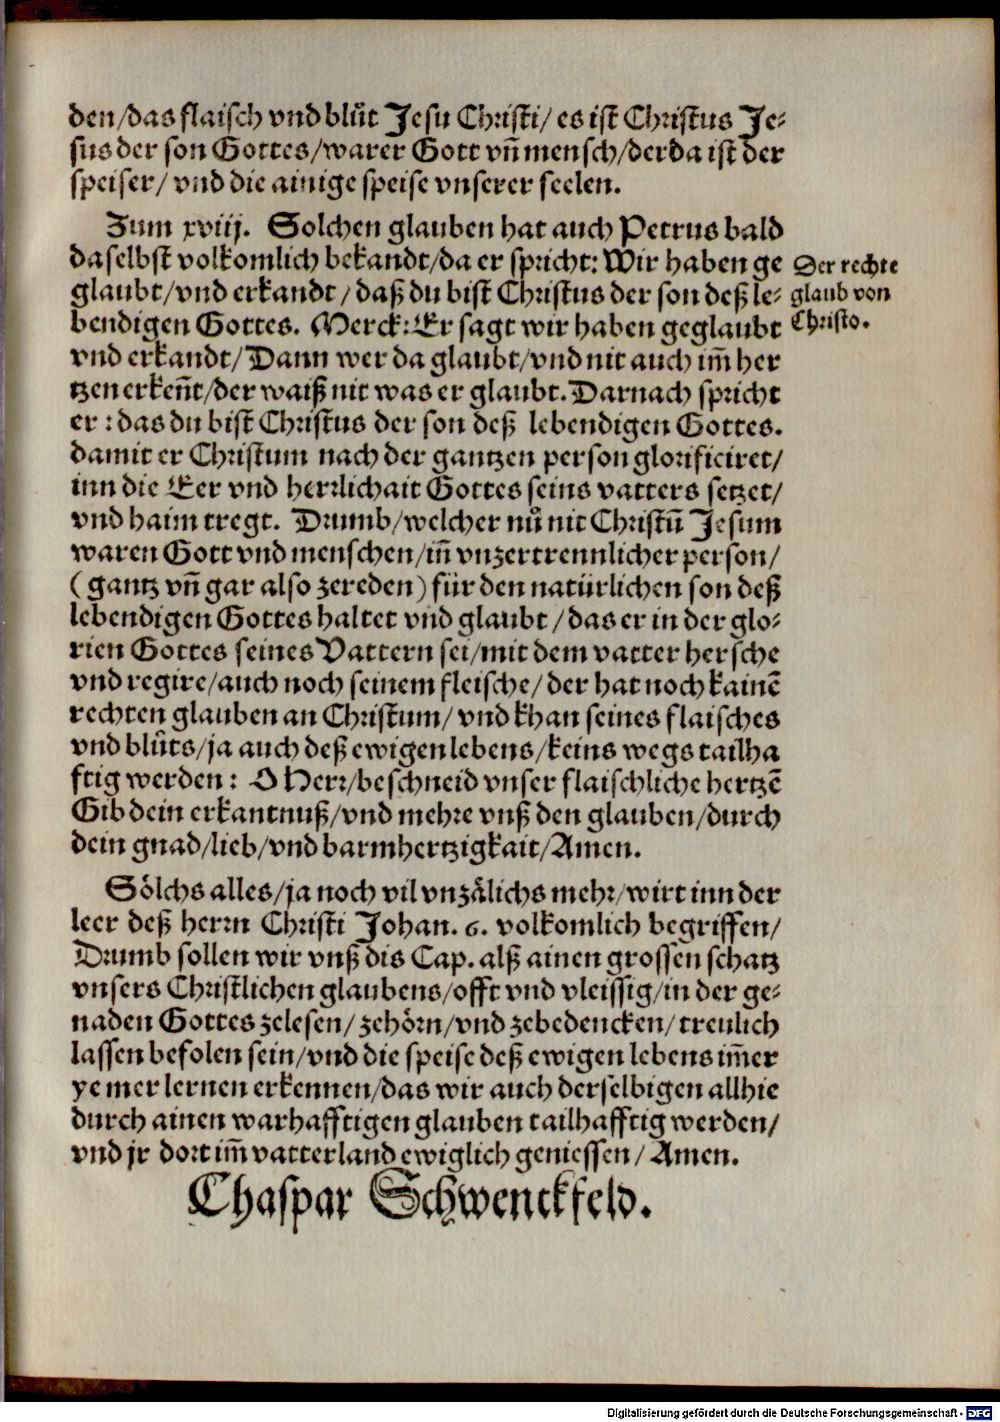 den/das flaisch vnd blůt Jesu Christi/ es ist Christus Je⸗
sus der son Gottes/warer Gott vñ mensch/der da ist der
speiser/ vnd die ainige speise vnserer seelen.
Zum xviij. Solchen glauben hat auch Petrus bald
daselbst volkomlich bekandt/da er spricht: Wir haben ge
glaubt/vnd erkandt/ daß du bist Christus der son deß le⸗
bendigen Gottes. Merck: Er sagt wir haben geglaubt
Der rechte
glaub von
Christo.
vnd erkandt/ Dann wer da glaubt/vnd nit auch im̃ her
tzen erkeñt/der waiß nit was er glaubt. Darnach spricht
er: das du bist Christus der son deß lebendigen Gottes.
damit er Christum nach der gantzen person glorificiret/
inn die Eer vnd herrlichait Gottes seins vatters setzet/
vnd haim tregt. Drumb/welcher nů nit Christũ Jesum
waren Gott vnd menschen/iñ vnzertrennlicher person/
(gantz vñ gar also zereden) für den natürlichen son deß
lebendigen Gottes haltet vnd glaubt/das er in der glo⸗
rien Gottes seines Vattern sei/mit dem vatter hersche
vnd regire/auch noch seinem fleische/ der hat noch kainẽ
rechten glauben an Christum/ vnd khan seines flaisches
vnd blůts/ja auch deß ewigen lebens/keins wegs tailha
ftig werden: O Herr/beschneid vnser flaischliche hertzẽ
Gib dein erkantnuß/vnd mehre vnß den glauben/durch
dein gnad/lieb/vnd barmhertzigkait/Amen.
Sölchs alles/ja noch vil vnzälichs mehr/wirt inn der
leer deß herrn Christi Johan. 6. volkomlich begriffen/
Drumb sollen wir vnß dis Cap. alß ainen grossen schatz
vnsers Christlichen glaubens/offt vnd vleissig/in der ge⸗
naden Gottes zelesen/ zehörn/vnd zebedencken/ treulich
lassen befolen sein/vnd die speise deß ewigen lebens im̃er
ye mer lernen erkennen/das wir auch derselbigen allhie
durch ainen warhafftigen glauben tailhafftig werden/
vnd jr dort im̃ vatterland ewiglich geniessen/ Amen.
Chaspar Schwenckfeld.
Digitalisierung gefördert durch die Deutsche Forschungsgemeinschaft - DFG